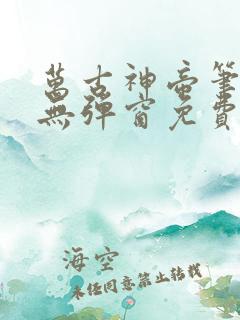 萬古神帝筆
無彈窗免費
海空
未經同意禁止轉載